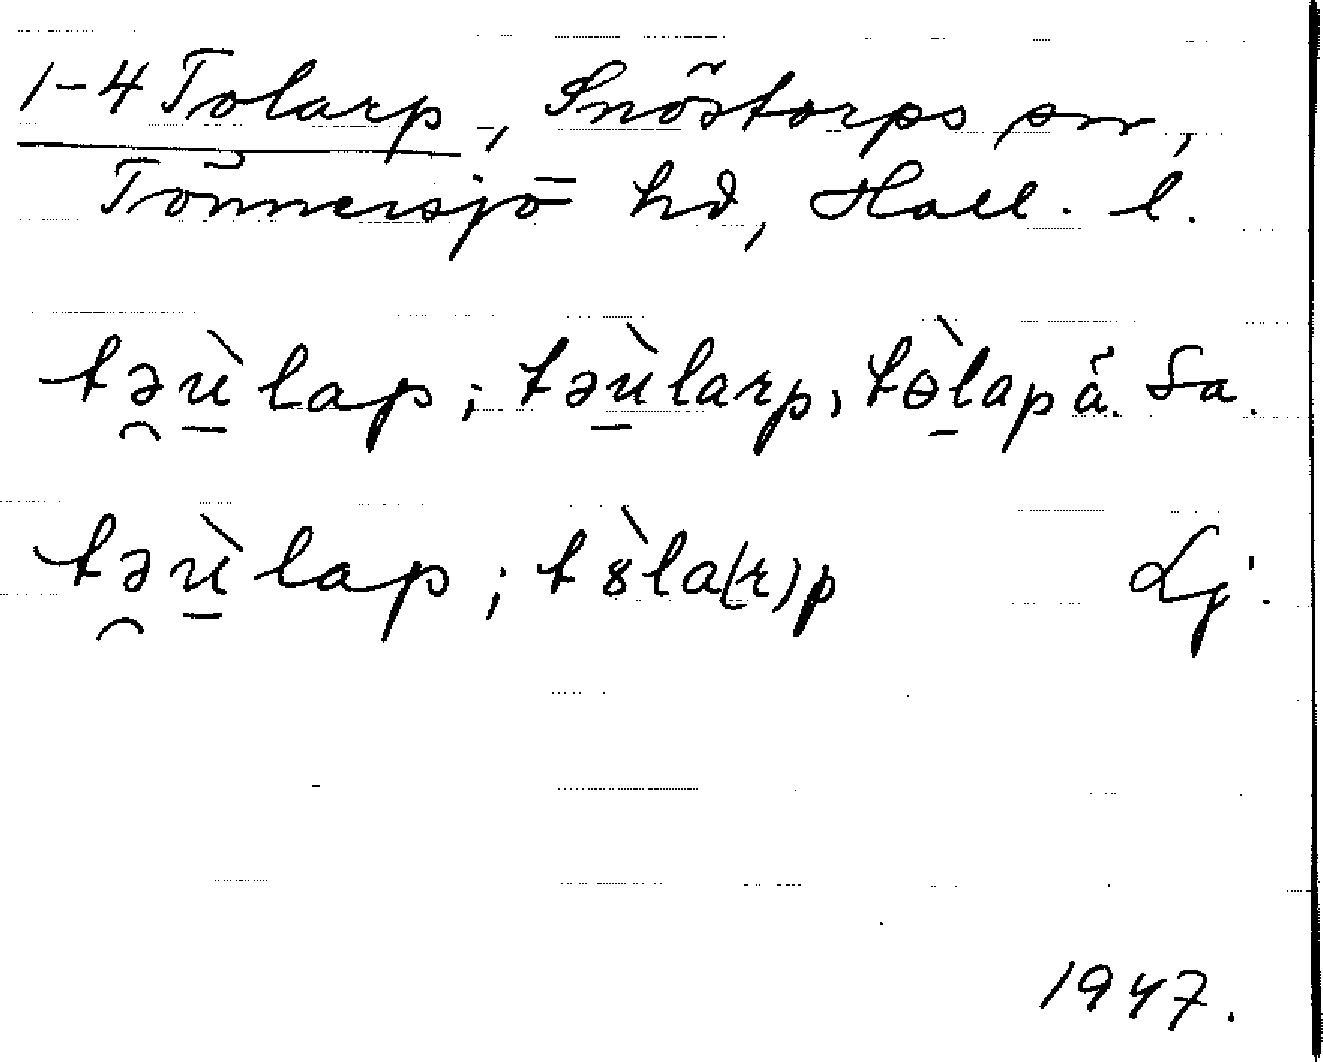 1-4 Tolarp, Snöstorps sn,
Tönnersjö hd, Hall. l.
tə̯ù̱lap; təù̱larp, tɵ̱̀lap ä. Sa.
tə̯ù̱lap; t8̀la(r)p Lj.
1947.